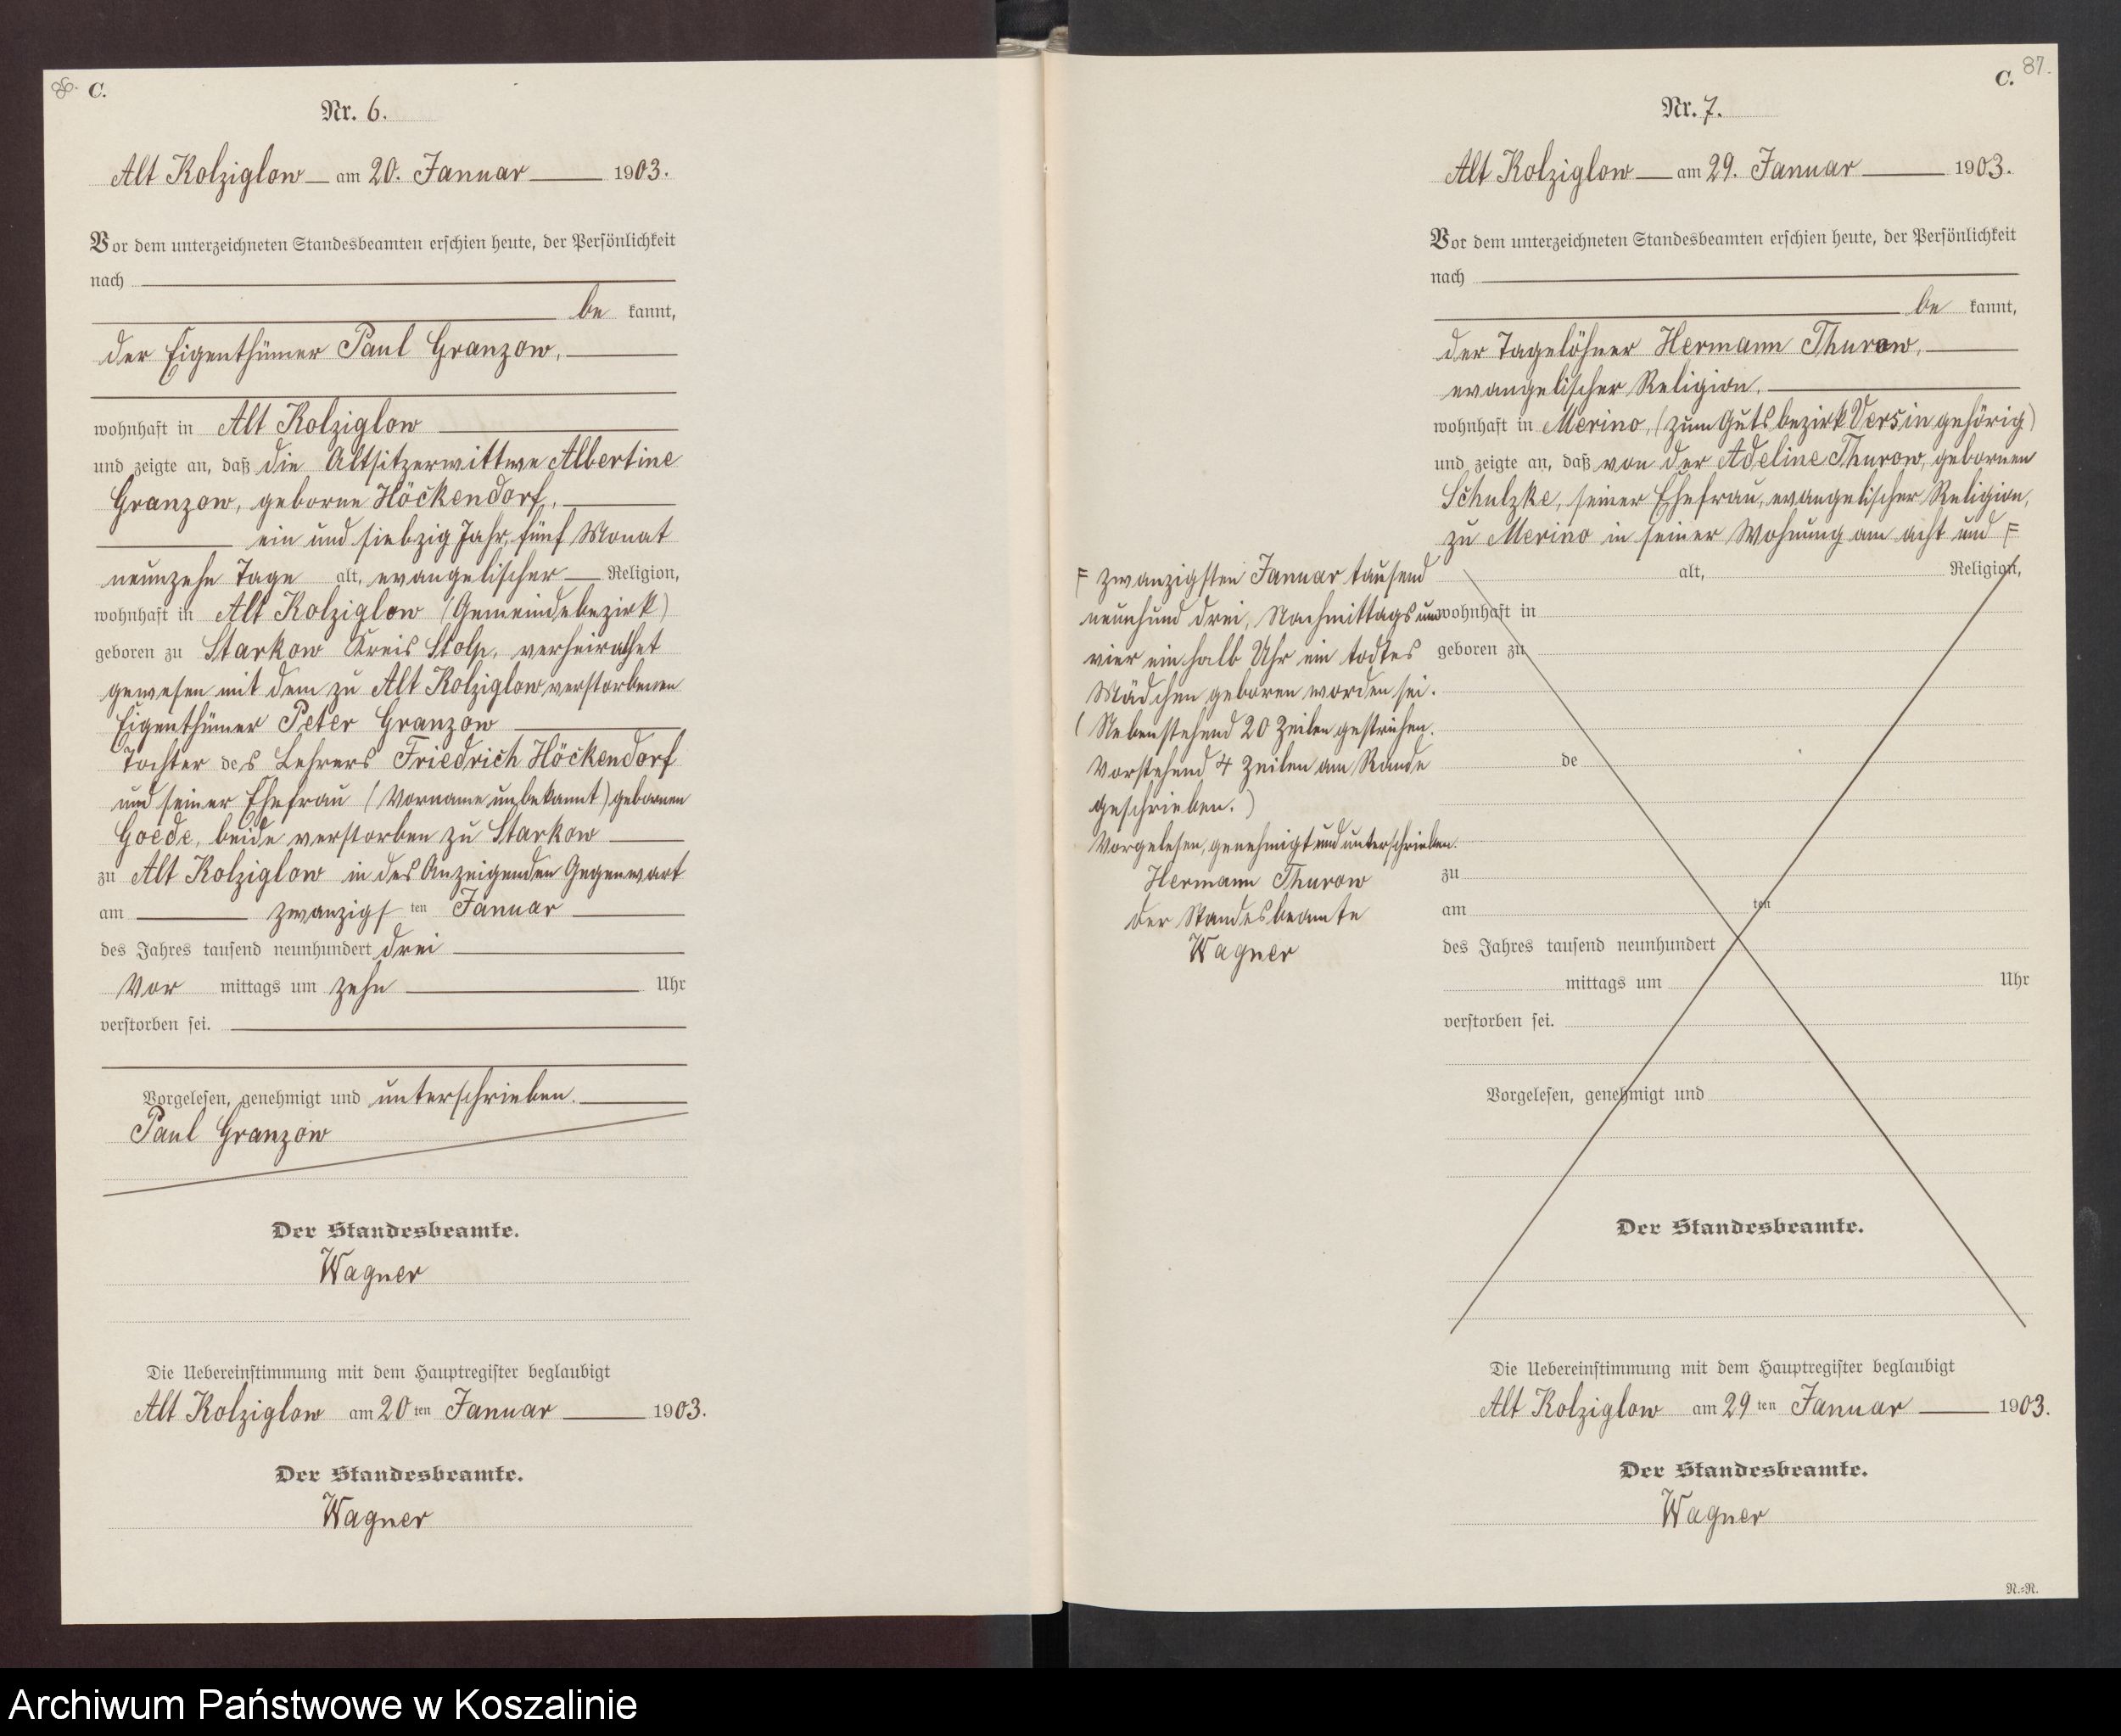 86. C.
Nr. 6.
Alt Kolziglow am 20. Januar 1903.
Vor dem unterzeichneten Standesbeamten erschien heute, der Persönlichkeit
nach
be kannt,
der Eigenthümer Paul Granzow,
wohnhaft in Alt Kolziglow
und zeigte an, daß die Altsitzerwittwe Albertine
Granzow, geborne Höckendorf,
ein und siebzig Jahr, fünf Monat
neunzehn Tage alt, evangelischer Religion,
wohnhaft in Alt Kolziglow (Gemeindebezirk)
geboren zu Starkow Kreis Stolp, verheirathet
gewesen mit dem zu Alt Kolziglow verstorbenen
Eigenthümer Peter Granzow
Tochter des Lehrers Friedrich Höckendorf
und seiner Ehefrau (Vorname unbekannt) gebornen
Goede, beide verstorben zu Starkow
zu Alt Kolziglow in des Anzeigenden Gegenwart
am zwanzigsten Januar
des Jahres tausend neunhundert drei
Vor mittags um zehn Uhr
verstorben sei.
Vorgelesen, genehmigt und unterschrieben.
Paul Granzow
Der Standesbeamte.
Wagner
Die Uebereinstimmung mit dem Hauptregister beglaubigt
Alt Kolziglow am 20ten Januar 1903.
Der Standesbeamte.
Wagner
C. 87.
Nr. 7.
Alt Kolziglow am 29. Januar 1903.
Vor dem unterzeichneten Standesbeamten erschien heute, der Persönlichkeit
nach
be kannt,
der Tagelöhner Hermann Thurow,
evangelischer Religion.
wohnhaft in Merino, (zum Gutsbezirk Versin gehörig)
und zeigte an, daß von der Adeline Thurow, gebornen
Schulzke, seiner Ehefrau, evangelischer Religion,
zu Merino in seiner Wohnung am acht und F
F zwanzigsten Januar tausend
neunhund drei, Nachmittags um
vier ein halb Uhr ein todtes
Mädchen geboren worden sei.
(Nebenstehend 20 Zeilen gestrichen.
Vorstehend 4 Zeilen am Rande
geschrieben.)
Vorgelesen, genehmigt und unterschrieben.
Hermann Thurow
Der Standesbeamte
Wagner
alt, Religion,
wohnhaft in
geboren zu
de
zu
am ten
des Jahres tausend neunhundert
mittags um Uhr
verstorben sei.
Vorgelesen, genehmigt und
Der Standesbeamte.
Die Uebereinstimmung mit dem Hauptregister beglaubigt
Alt Kolziglow am 29ten Januar 1903.
Der Standesbeamte.
Wagner
N.=N.
Archiwum Państwowe w Koszalinie